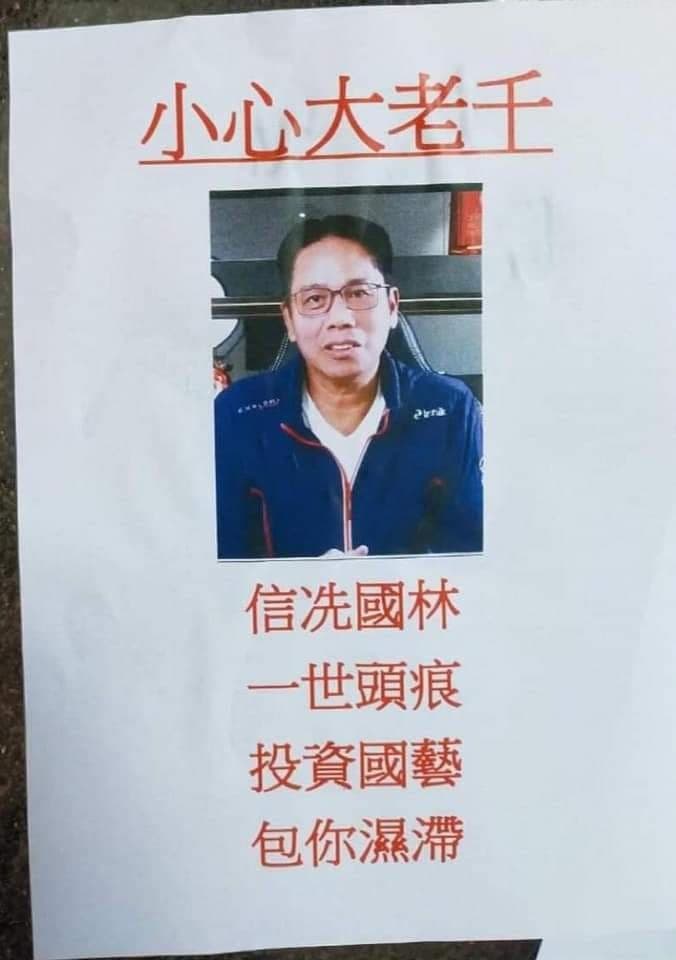 小心大老千
信冼國林
一世頭痕
投資國藝
包你濕滯